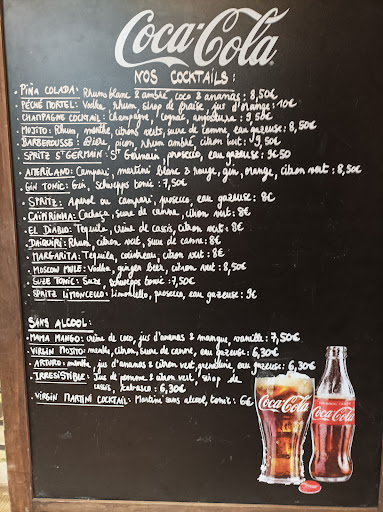 Coca-Cola
NOS COCKTAILS :
• PIÑA COLADA : Rhum blanc & ambré, coco & ananas : 8,50€
• PÉCHÉ MORTEL : Vodka, rhum, sirop de fraise, jus d'orange : 10€
• CHAMPAGNE COCKTAIL : Champagne, cognac, angostura : 9,50€
• MOJITO : Rhum, menthe, citrons verts, sucre de canne, eau gazeuse : 8,50€
• BARBEROUSSE : Bière, picon, rhum ambré, citron vert : 9,50€
• SPRITZ ST GERMAIN : St Germain, prosecco, eau gazeuse : 9€50
• AMERICANO : Campari, martini blanc & rouge, gin, orange, citron vert : 8,50€
• GIN TONIC : Gin, schwepps tonic : 7,50€
• SPRITZ : Aperol ou campari, prosecco, eau gazeuse : 8€
• CAÏPIRINHA : Cachaça, sucre de canne, citron vert : 8€
• EL DIABLO : Tequila, crème de cassis, citron vert : 8€
• DAIQUIRI : Rhum, citron vert, sucre de canne : 8€
• MARGARITA : Tequila, cointreau, citron vert : 8€
• MOSCOW MULE : Vodka, ginger beer, citron vert : 8,50€
• SUZE TONIC : Suze, schwepps tonic : 7,50€
• SPRITZ LIMONCELLO : Limoncello, prosecco, eau gazeuse : 9€
SANS ALCOOL :
• MAMA MANGO : crème de coco, jus d'ananas & mangue, vanille : 7,50€
• VIRGIN MOJITO : menthe, citron, sucre de canne, eau gazeuse : 6,30€
• ARTURO : menthe, jus d'ananas & citron vert, grenadine, eau gazeuse : 6,30€
• IRRESISTIBLE : Jus de pomme & citron vert, sirop de
cassis, tabasco : 6,30€
• VIRGIN MARTINI COCKTAIL : Martini sans alcool, tonic : 6€
Coca-Cola
Coca-Cola